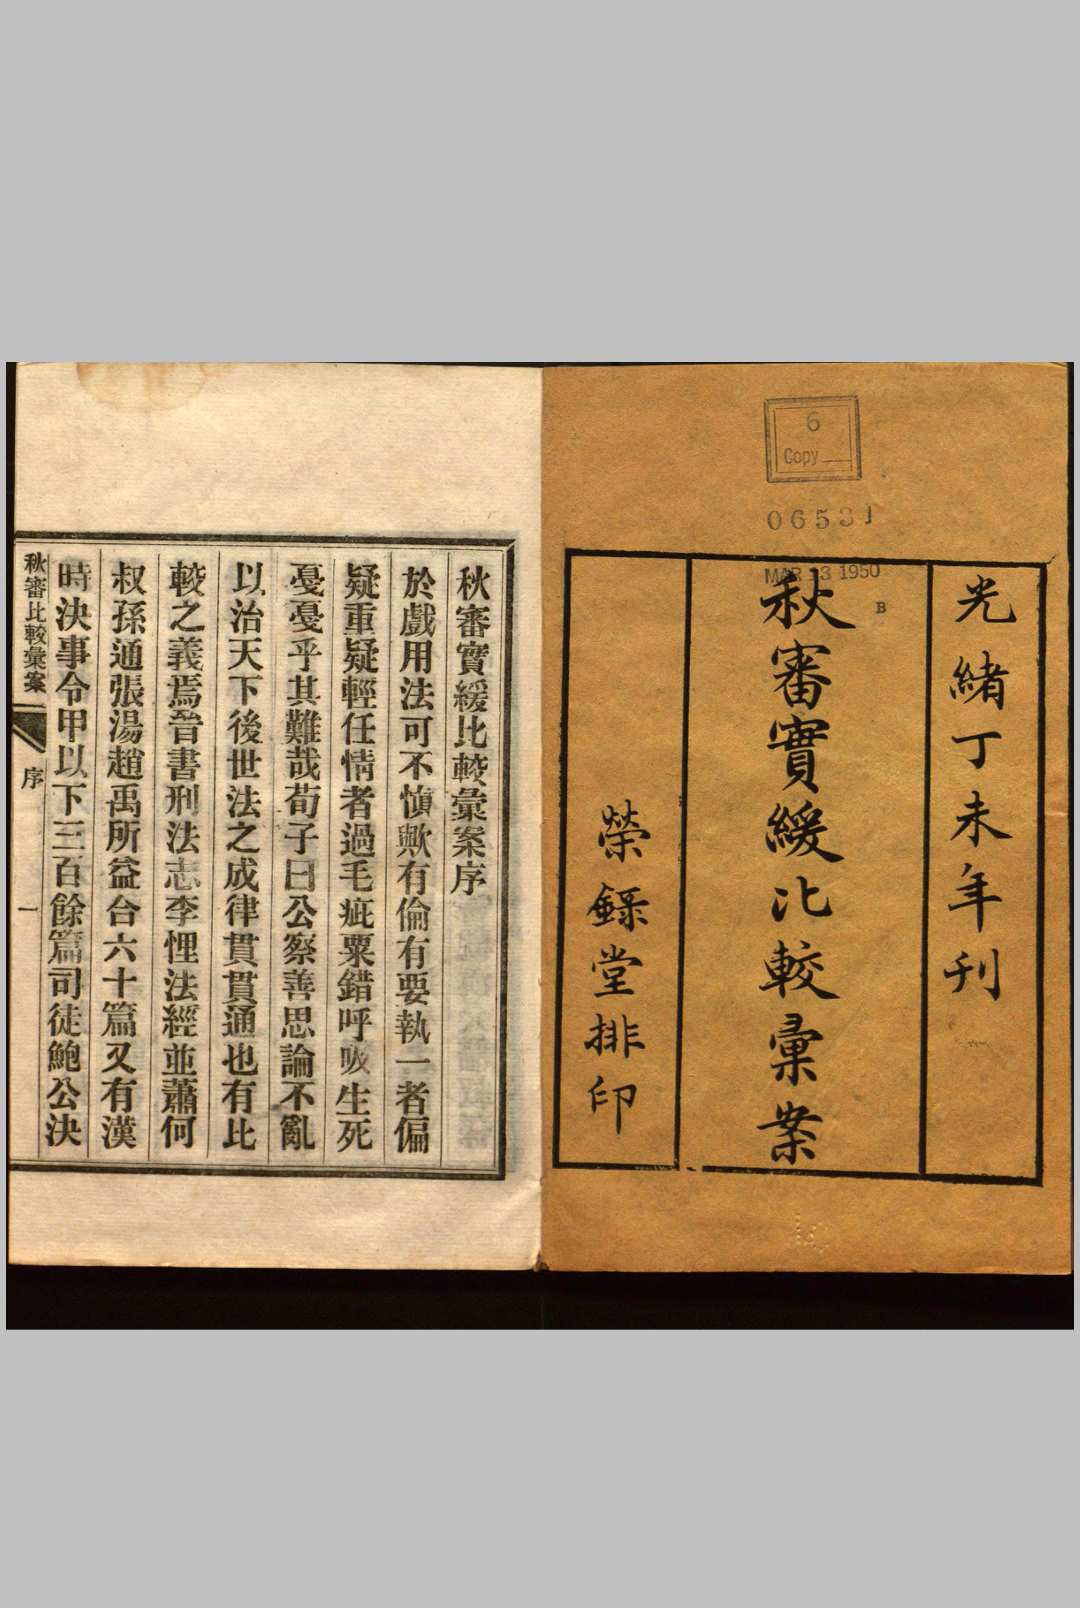 6
Copy
0653
MAR 13 1950
B
光緒丁未年刊
秋審實緩比較彙案
榮錄堂排印
秋審實緩比較彙案序
於戲用法可不慎歟有倫有要執一者偏
疑重疑輕任情者過毛疵粟錯呼吸生死
戞戞乎其難哉荀子曰公察善思論不亂
以治天下後世法之成律貫貫通也有比
較之義焉晉書刑法志李悝法經並蕭何
叔孫通張湯趙禹所益合六十篇又有漢
時決事令甲以下三百餘篇司徒鮑公決
秋審比較彙案
序
一